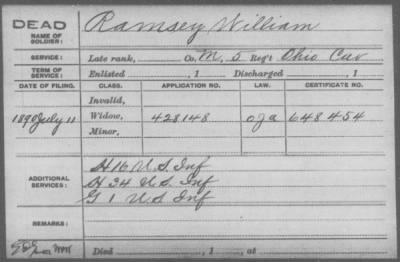 DEAD
NAME OF SOLDIER: Ramsey William
SERVICE: Late rank, Co. M, 5 Reg't Ohio Cav
TERM OF SERVICE: Enlisted , 1 Discharged , 1
DATE OF FILING. CLASS. APPLICATION NO. LAW. CERTIFICATE NO.
Invalid,
1890 July 11 Widow, 428148 648454
Minor,
ADDITIONAL SERVICES: H 16 U.S. Inf
H 34 U.S. Inf
G 1 U S Inf
REMARKS:
Died , 1 , at